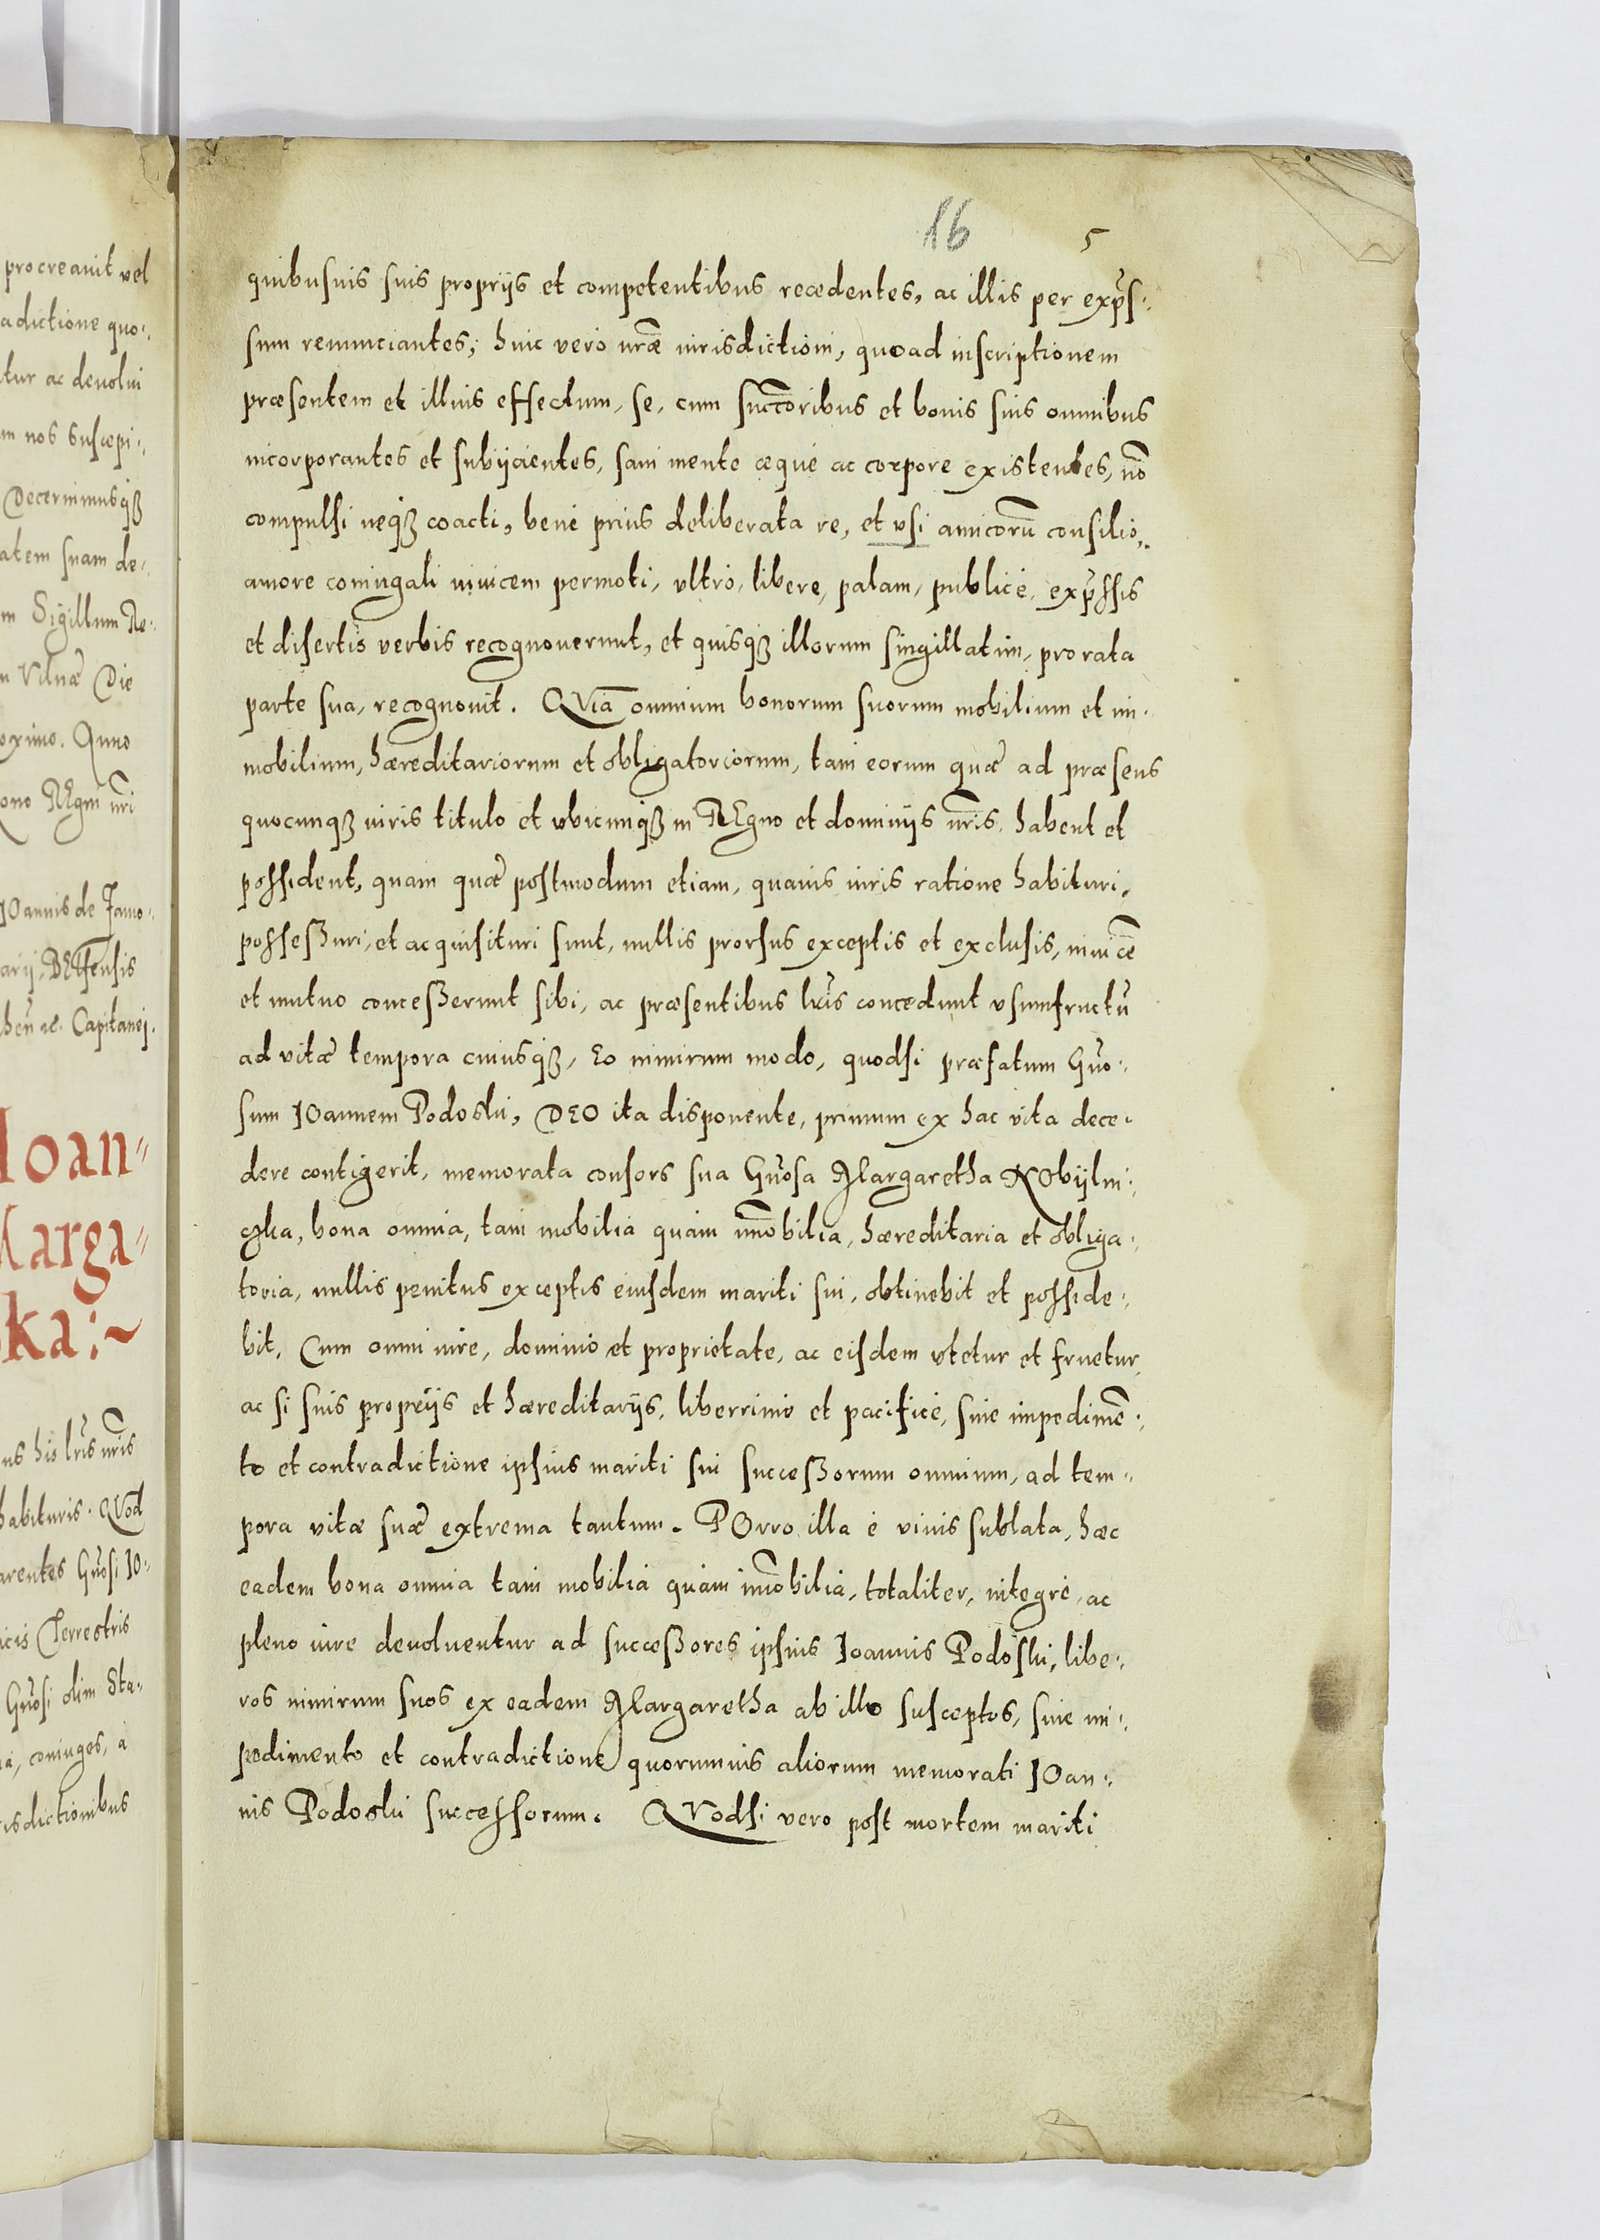 procreavit vel
adictione quo:
itur ac devolvi
m nos suscepi:
Decernimusq3
atem suam de:
m Sigillum Re:
n Vilnæ Die
oximo. Anno
ono REgni nr̃i
IOannis de Zamo:
arij, BElsensis
Capitanej.
Ioan=
Marga=
ka:~
ns his lr̃is nr̃is
habituris. QVod
arentes Gn̄osi IO:
icis Terrestris
Gn̄osi olim Sta:
a, coniuges, a
risdictionibus
16 5
quibusuis suis proprijs et competentibus recedentes, ac illis per expr̃s:
sum renunciantes; huic vero nr̃æ iurisdictioni, quoad inscriptionem
præsentem et illius effectum, se, cum succõribus et bonis suis omnibus
incorporantes et subijcientes, sani mente æque ac corpore existentes, nõ
compulsi neq3 coacti, bene prius deliberata re, et vsi amicorũ consilio,
amore coniugali invicem permoti, vltro, libere, palam, publice, expr̃ssis
et disertis verbis recognoverunt, et quisq3 illorum singillatim, pro rata
parte sua, recognovit. QVia omnium bonorum suorum mobilium et im:
mobilium, hæreditariorum et obligatoriorum, tam eorum quæ ad præsens
quocunq3 iuris titulo et vbicunq3 in REgno et dominijs nr̃is, habent et
possident, quam quæ postmodum etiam, quavis iuris ratione habituri,
possessuri, et acquisituri sunt, nullis prorsus exceptis et exclusis, invicẽ
et mutuo concesserunt sibi, ac præsentibus lr̃is concedunt vsumfructũ
ad vitæ tempora cuiusq3, Eo nimirum modo, quodsi præfatum Gn̄o:
sum IOannem Podoski, DEO ita disponente, primum ex hac vita dece:
dere contigerit, memorata consors sua Gn̄osa Margaretha KObijlni:
czka, bona omnia, tam mobilia quam im̃obilia, hæreditaria et obliga:
toria, nullis penitus exceptis eiusdem mariti sui, obtinebit et posside:
bit, Cum omni iure, dominio et proprietate, ac eisdem vtetur et fruetur,
ac si suis proprijs et hæreditarijs, liberrime et pacifice, sine impedimẽ:
to et contradictione ipsius mariti sui successorum omnium, ad tem:
pora vitæ suæ extrema tantum. POrro illa e vivis sublata, hæc
eadem bona omnia tam mobilia quam im̃obilia, totaliter, integre, ac
pleno iure devolventur ad successores ipsius Ioannis Podoski, libe:
ros nimirum suos ex eadem Margaretha ab illo susceptos, sine im:
pedimento et contradictione quorumvis aliorum memorati IOan:
nis Podoski successorum. QVodsi vero post mortem mariti